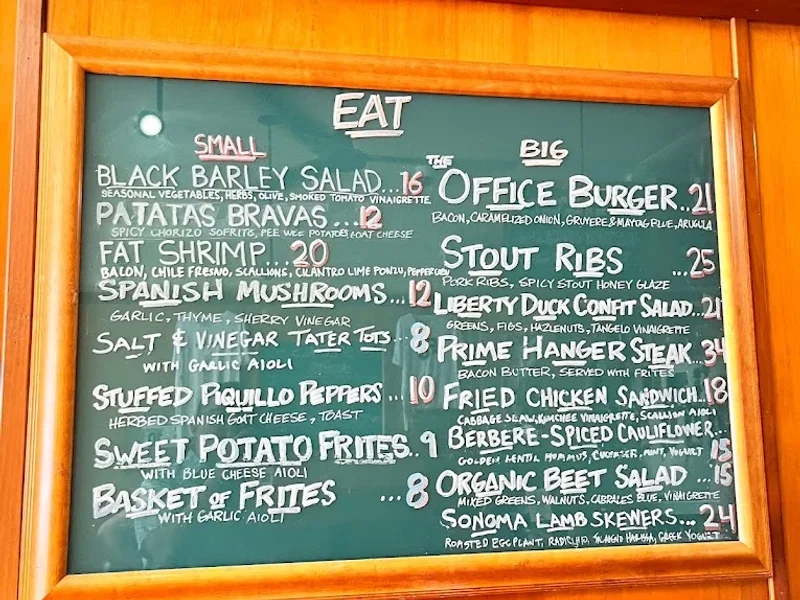 EAT
SMALL
BLACK BARLEY SALAD...16
SEASONAL VEGETABLES, HERBS, OLIVE, SMOKED TOMATO VINAIGRETTE
PATATAS BRAVAS...12
SPICY CHORIZO SOFRITO, PEE WEE POTATOES, GOAT CHEESE
FAT SHRIMP...20
BACON, CHILE FRESNO, SCALLIONS, CILANTRO LIME PONZU,
SPANISH MUSHROOMS...12
GARLIC, THYME, SHERRY VINEGAR
SALT & VINEGAR TATER TOTS...8
WITH GARLIC AIOLI
STUFFED PIQUILLO PEPPERS...10
HERBED SPANISH GOAT CHEESE, TOAST
SWEET POTATO FRITES..9
WITH BLUE CHEESE AIOLI
BASKET OF FRITES ...8
WITH GARLIC AIOLI
BIG
THE OFFICE BURGER..21
BACON, CARAMELIZED ONION, GRUYERE & MAYTAG BLUE, ARUGULA
STOUT RIBS ...25
PORK RIBS, SPICY STOUT HONEY GLAZE
LIBERTY DUCK CONFIT SALAD...21
GREENS, FIGS, HAZLENUTS, TANGELO VINAIGRETTE
PRIME HANGER STEAK...34
BACON BUTTER, SERVED WITH FRITES
FRIED CHICKEN SANDWICH..18
CABBAGE SLAW, KIMCHEE VINAIGRETTE, SCALLION AIOLI
BERBERE-SPICED CAULIFLOWER...15
GOLDEN LENTIL HUMMUS, CUCUMBER, MINT, YOGURT
ORGANIC BEET SALAD ...15
MIXED GREENS, WALNUTS, CABRALES BLUE, VINAIGRETTE
SONOMA LAMB SKEWERS...24
ROASTED EGGPLANT, HARISSA, GREEK YOGURT